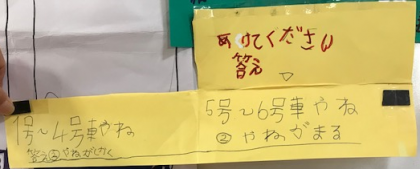 あけてください
答え
5号~6号車やね
②やねがまる
1号~4号車やね
答え②やねがしかく